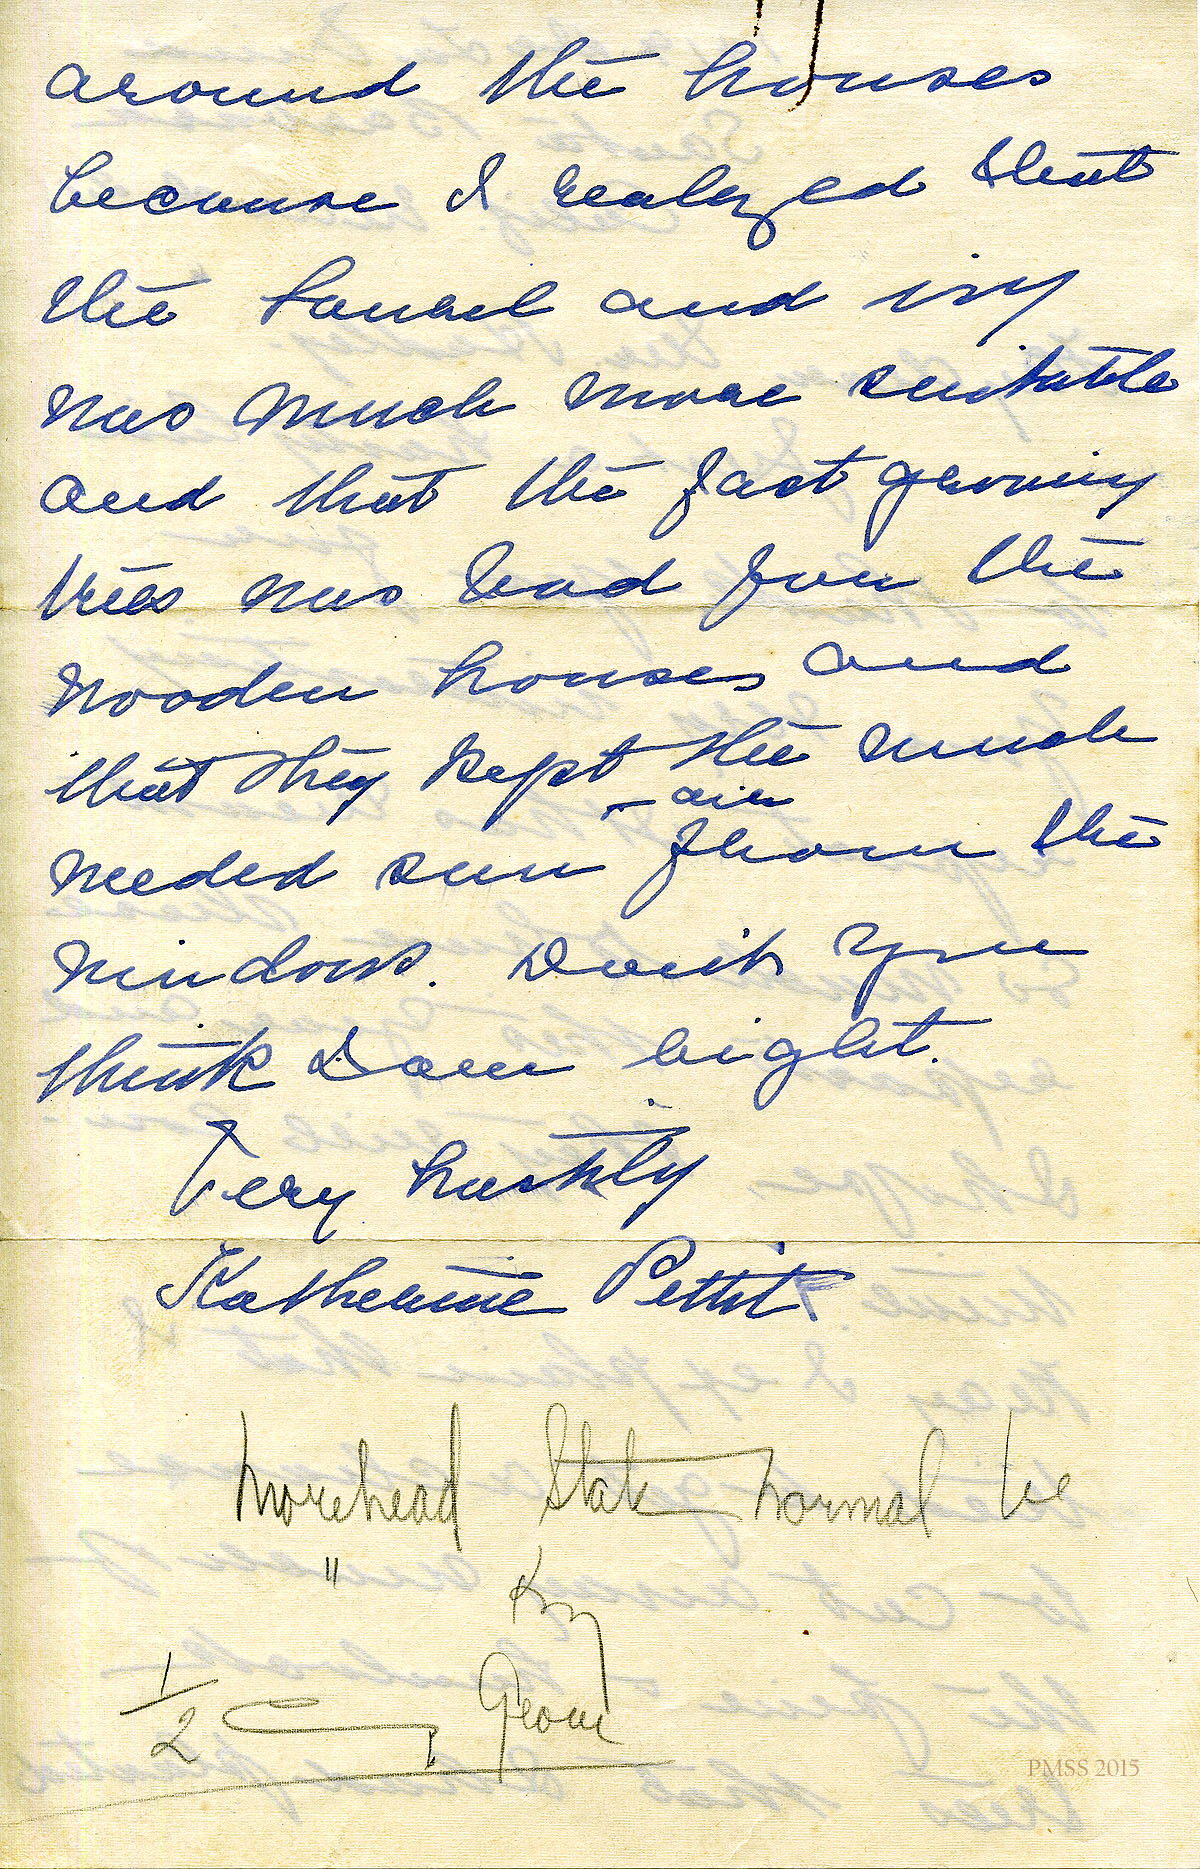 around the houses
because I realized that
the laurel and ivy
was much more suitable
and that the fast growing
trees was bad for the
wooden houses and
that they kept the much
air
needed sun from the
windows. Don't you
think I am right.
Very hastily
Katherine Pettit
Morehead State Normal
"
Ky
1/2
PMSS 2015